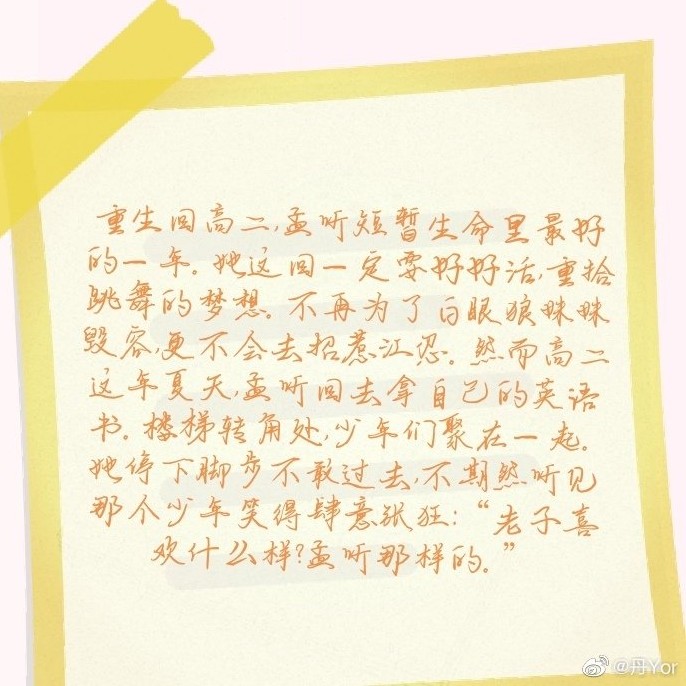 重生回高二,孟听短暂生命里最好
的一年。她这回一定要好好活,重拾
跳舞的梦想。不再为了白眼狼妹妹
毁容,更不会去招惹江忍。然而高二
这年夏天,孟听回去拿自己的英语
书。楼梯转角处,少年们聚在一起。
她停下脚步不敢过去,不期然听见
那个少年笑得肆意张狂:“老子喜
欢什么样?孟听那样的。”
@丹Yor